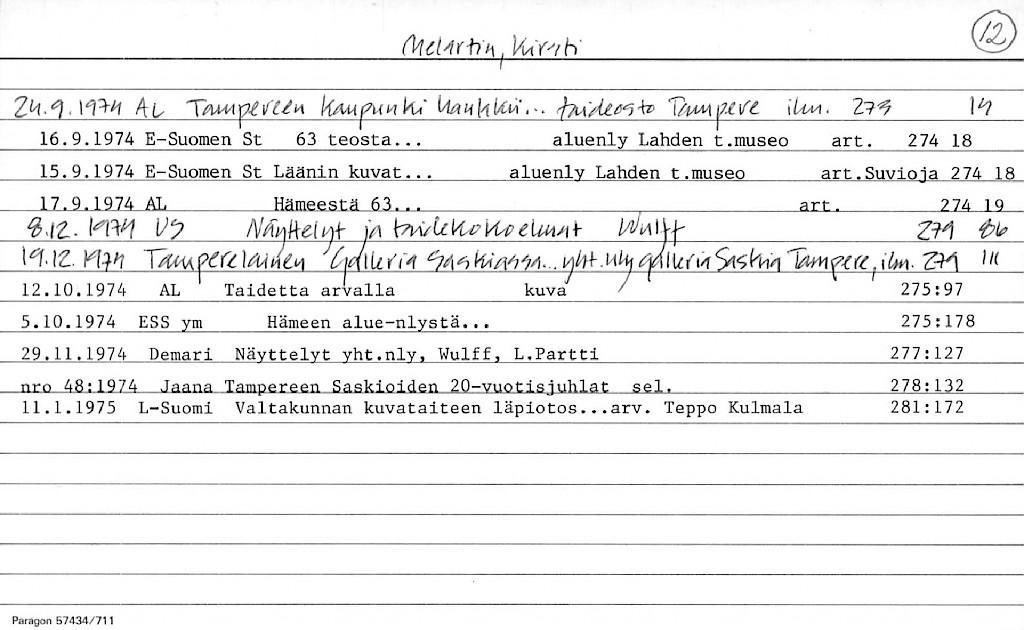 12
Melartin, Kirsti
24.9.1974 AL Tampereen kaupunki hankkii... taideosto Tampere ilm. 273 14
16.9.1974 E-Suomen St 63 teosta... aluenly Lahden t.museo art. 274 18
15.9.1974 E-Suomen St Läänin kuvat... aluenly Lahden t.museo art.Suvioja 274 18
17.9.1974 AL Hämeestä 63... art. 274 19
8.12.1974 US Näyttelyt ja taidekokoelmat Wulff 279 86
19.12.1974 Tamperelainen Galleria Saskiassa... yht.nly galleria Saskia Tampere, ilm. 279 111
12.10.1974 AL Taidetta arvalla kuva 275:97
5.10.1974 ESS ym Hämeen alue-nlystä... 275:178
29.11.1974 Demari Näyttelyt yht.nly, Wulff, L.Partti 277:127
nro 48:1974 Jaana Tampereen Saskioiden 20-vuotisjuhlat sel. 278:132
11.1.1975 L-Suomi Valtakunnan kuvataiteen läpiotos...arv. Teppo Kulmala 281:172
Paragon 57434/711